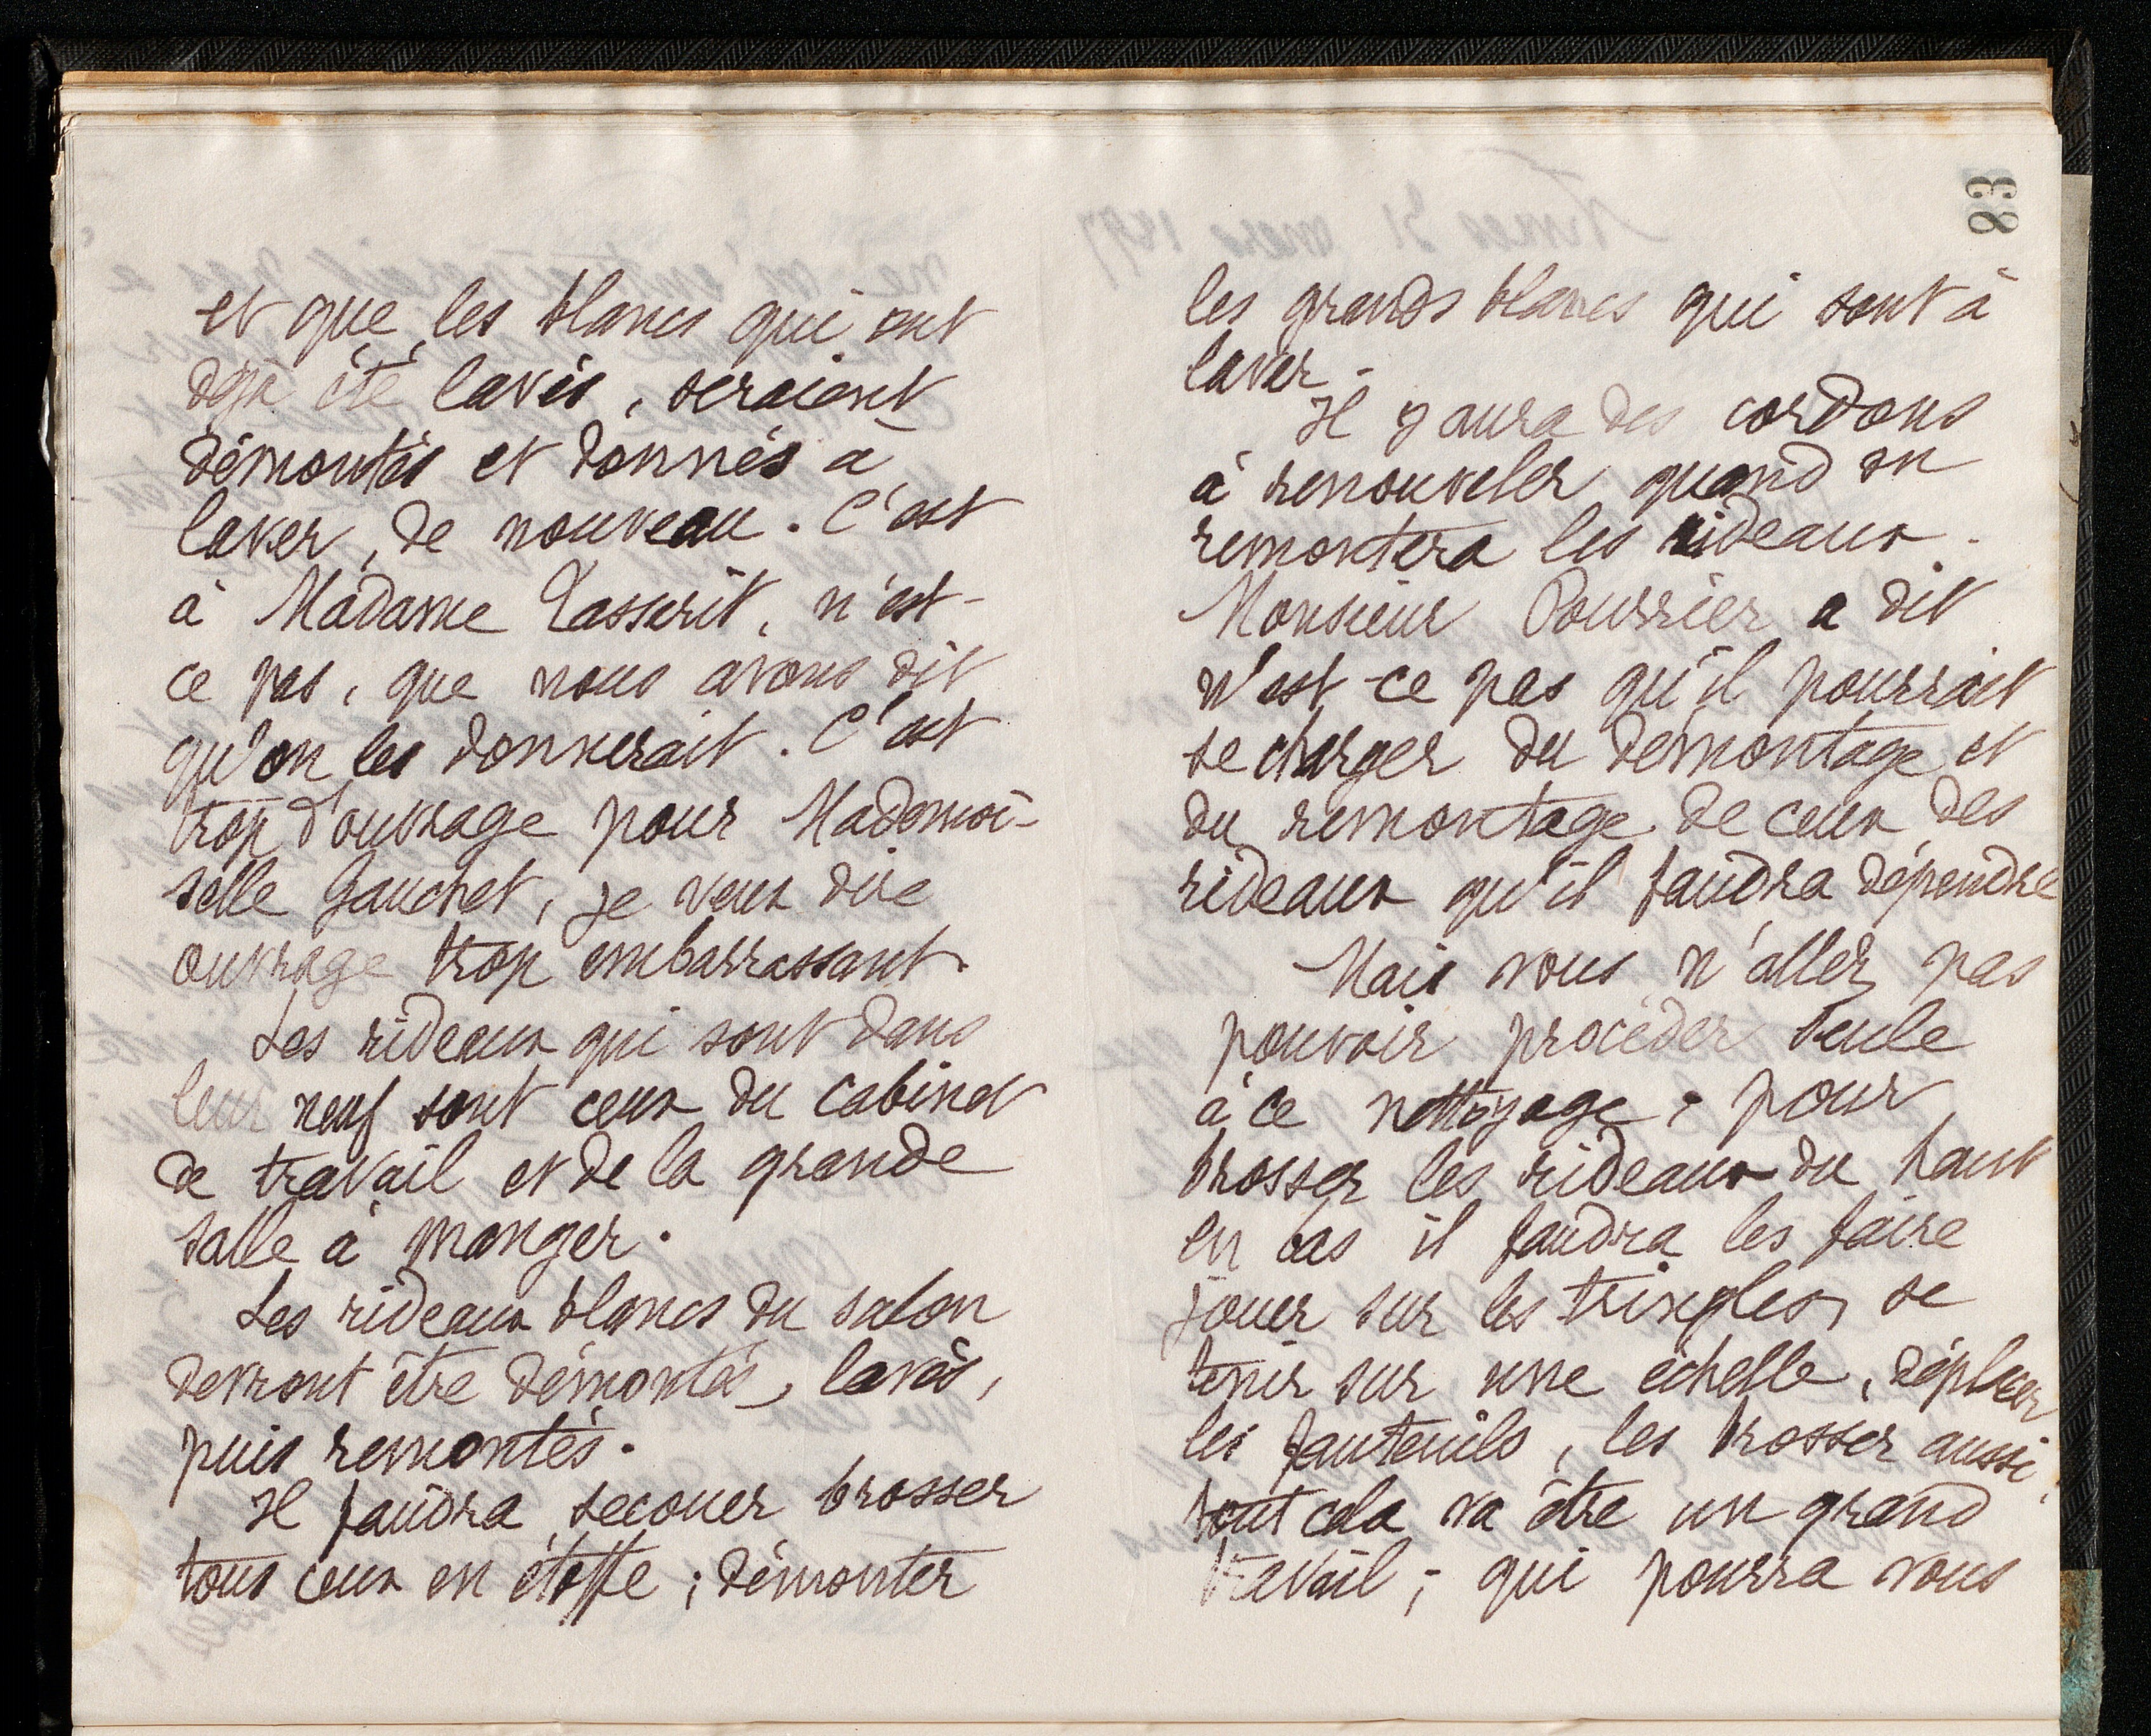 et que les blancs qui ont
déjà été lavés, seraient
démontés et donnés à
laver, de nouveau. C'est
à Madame Lasserit, n'est-
ce pas, que nous avons dit
qu'on les donnerait. C'est
trop d'ouvrage pour Mademoi-
selle Gauchet, je veux dire
ouvrage trop embarrassant.
Les rideaux qui sont dans
leur neuf sont ceux du cabinet
de travail et de la grande
salle à manger.
Les rideaux blancs du salon
devront être démontés, lavés,
puis remontés.
Il faudra secouer brosser
tous ceux en étoffe ; démonter
83
les grands blancs qui sont à
laver.
Il y aura des cordons
à renouveler quand on
remontera les rideaux.
Monsieur Pourrier a dit
n'est-ce pas qu'il pourrait
se charger du démontage et
du remontage de ceux des
rideaux qu'il faudra dépendre
Mais vous n'allez pas
pouvoir procéder seule
à ce nettoyage. pour
brosser les rideaux du haut
en bas il faudra les faire
jouer sur les tringles, se
tenir sur une échelle, déplacer
les fauteuils, les brosser aussi,
tout cela va être un grand
travail ; qui pourra vous